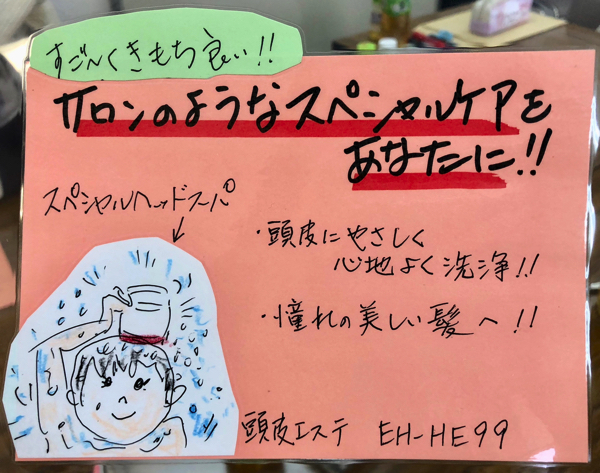 すごーくきもち良い!!
サロンのようなスペシャルケアを
あなたに!!
スペシャルヘッドスーパ
・頭皮にやさしく
心地よく洗浄!!
・憧れの美しい髪へ!!
頭皮エステ EH-HE99